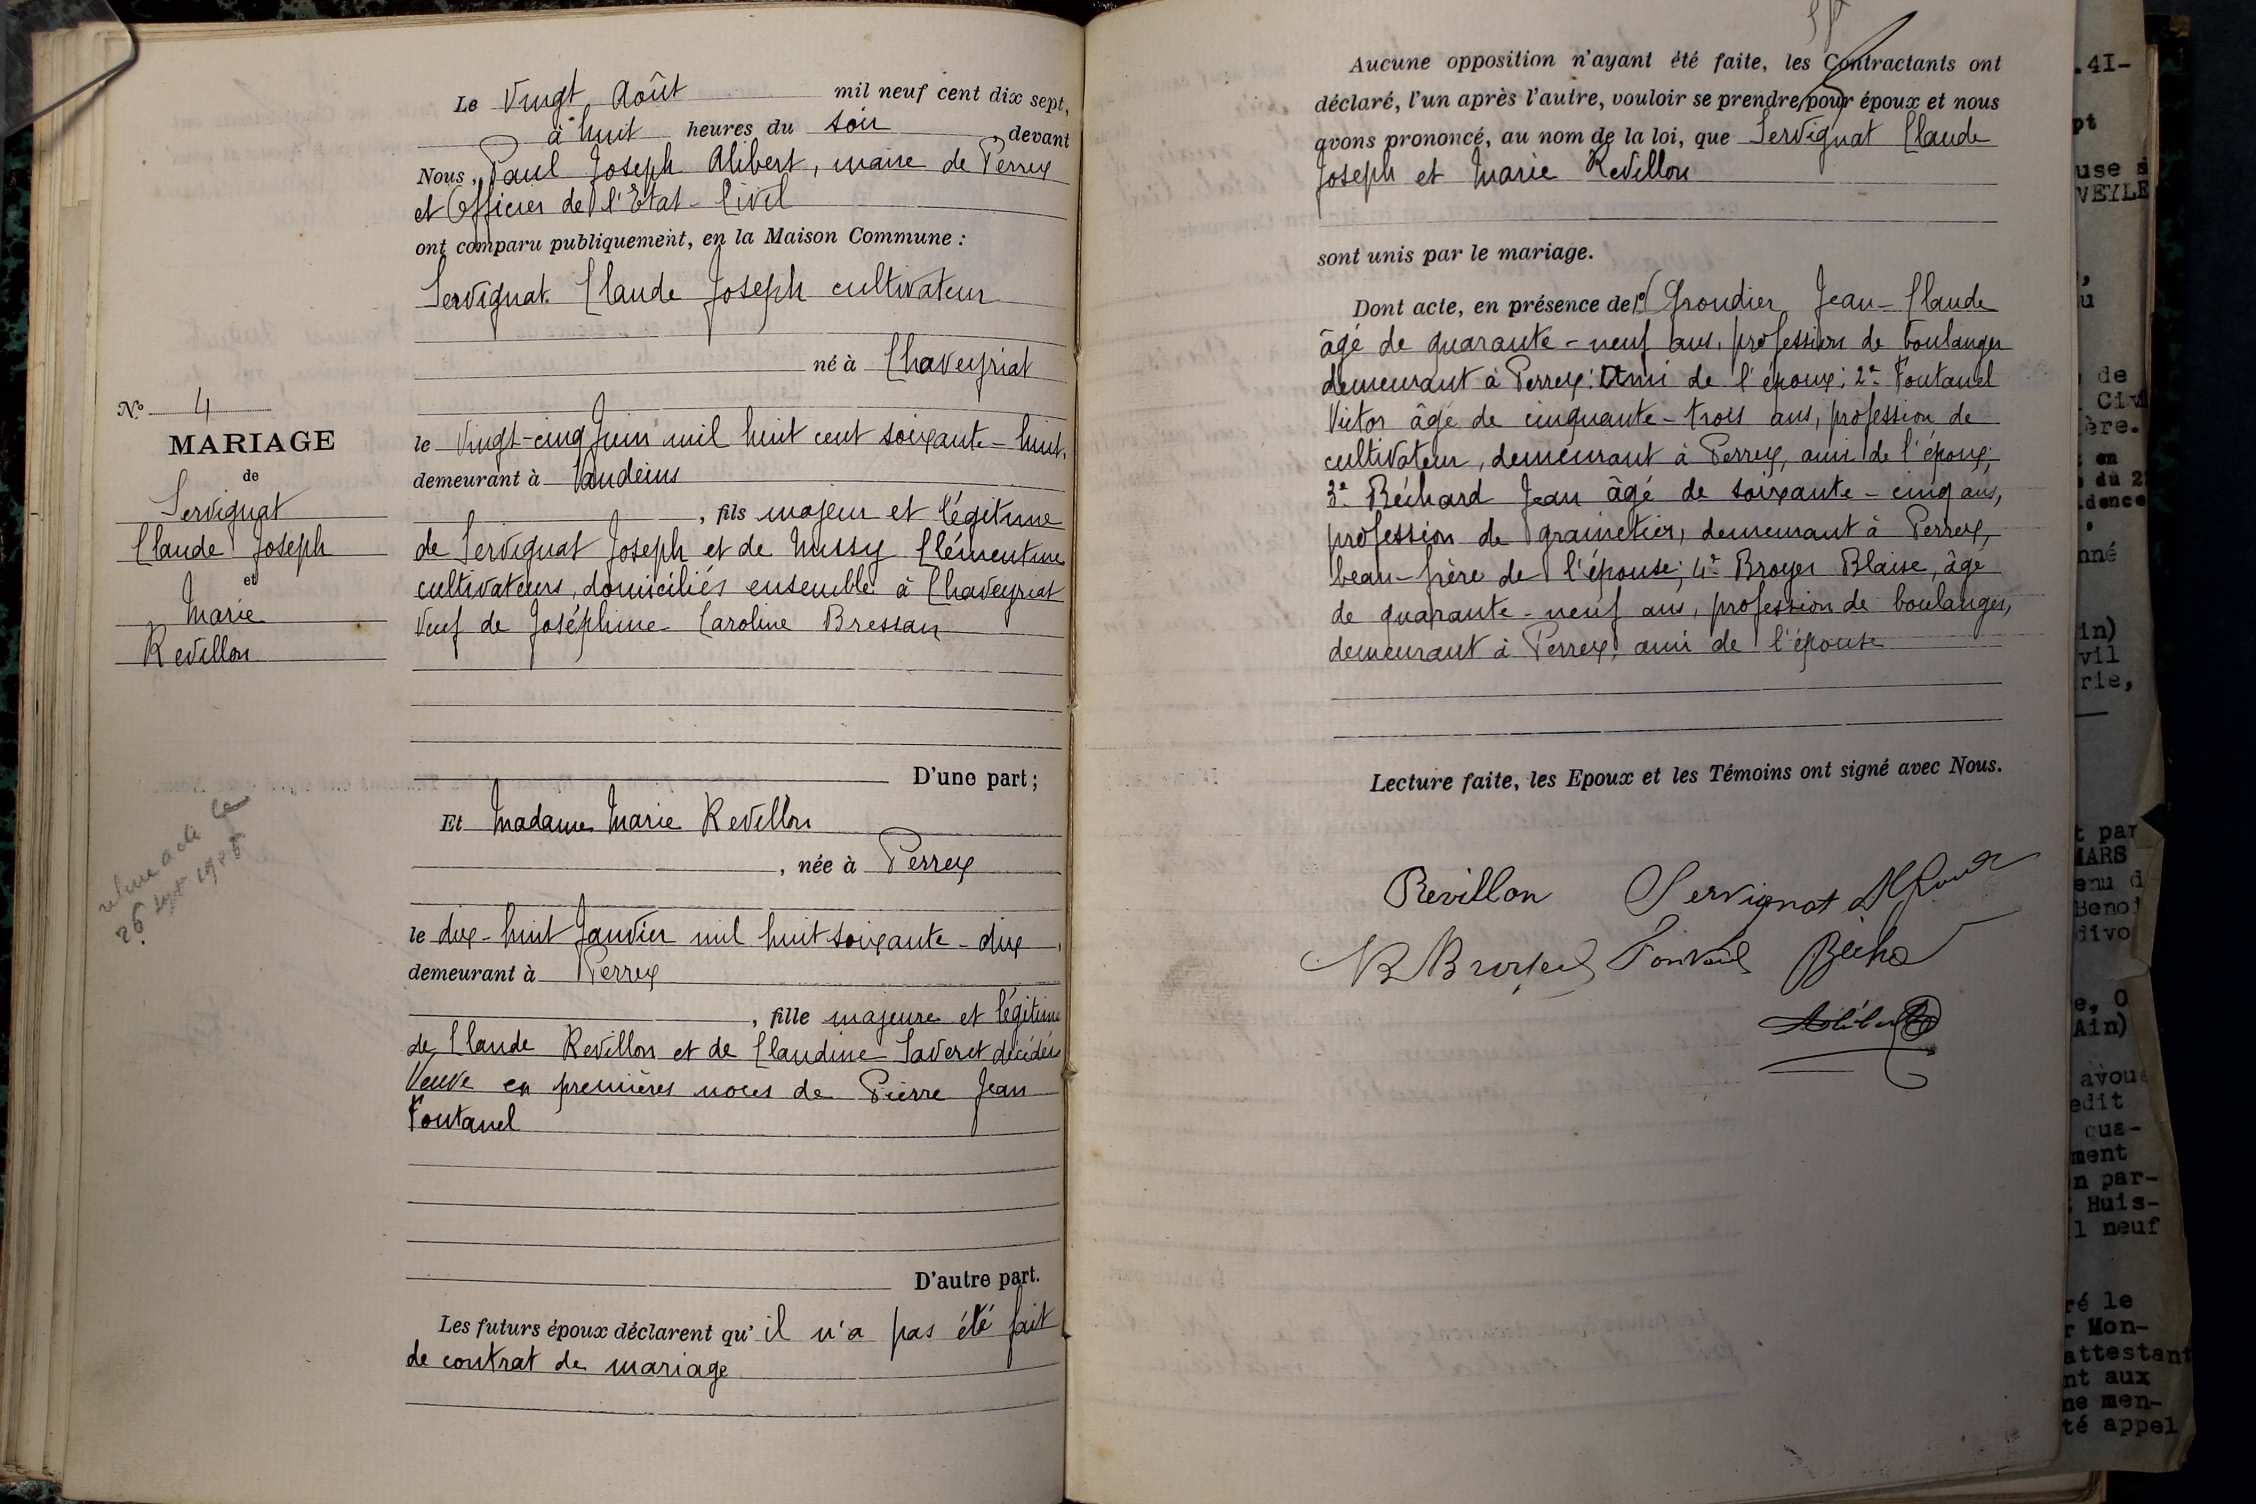 N° 4
MARIAGE
de
Servignat
Claude Joseph
et
Marie
Revillon
relevé acte le
26
Le Vingt Août mil neuf cent dix sept,
à huit heures du soir, devant
Nous, Paul Joseph Alibert, maire de Perrex
et Officier de l'Etat-Civil
ont comparu publiquement, en la Maison Commune :
Servignat Claude Joseph cultivateur
né à Chaveyriat
le vingt-cinq Juin mil huit cent soixante-huit,
demeurant à Vandeins
, fils majeur et légitime
de Servignat Joseph et de Missy Clémentine
cultivateurs, domiciliés ensemble à Chaveyriat
Veuf de Joséphine Caroline Bressan
D'une part ;
Et Madame Marie Revillon
, née à Perrex
le dix-huit Janvier mil huit soixante-dix,
demeurant à Perrex
, fille majeure et légitime
de Claude Revillon et de Claudine Saveret décédés
Veuve en premières noces de Pierre Jean
Fontanel
D'autre part.
Les futurs époux déclarent qu'il n'a pas été fait
de contrat de mariage
Aucune opposition n'ayant été faite, les Contractants ont
déclaré, l'un après l'autre, vouloir se prendre pour époux et nous
avons prononcé, au nom de la loi, que Servignat Claude
Joseph et Marie Revillon
sont unis par le mariage.
Dont acte, en présence de 1° Groudier Jean-Claude
âgé de quarante-neuf ans, profession de boulanger
demeurant à Perrex: Ami de l'époux; 2° Fontanel
Victor âgé de cinquante-trois ans, profession de
cultivateur, demeurant à Perrex, ami de l'époux;
3° Béchard Jean âgé de soixante-cinq ans,
profession de grainetier, demeurant à Perrex,
beau-frère de l'épouse; 4° Broyer Blaise, âgé
de quarante-neuf ans, profession de boulanger,
demeurant à Perrex, ami de l'épouse
Lecture faite, les Epoux et les Témoins ont signé avec Nous.
Revillon Servignat
B Broyer Fontanel Becha
Alibert
.41-
pt
use
VEYLE
u
de
Civ
ère.
en
du 2
dence
nné
in)
vil
rie,
t par
MARS
enu d
Benoi
divo
e, O
Ain)
avoué
edit
qua-
ment
n par-
Huis-
l neuf
ré le
r Mon-
attestant
nt aux
ne men-
té appel